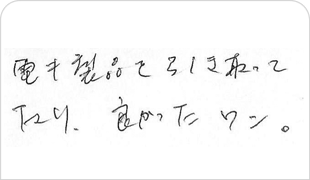 電キ製品を引き取って
下さり、良かったワン。